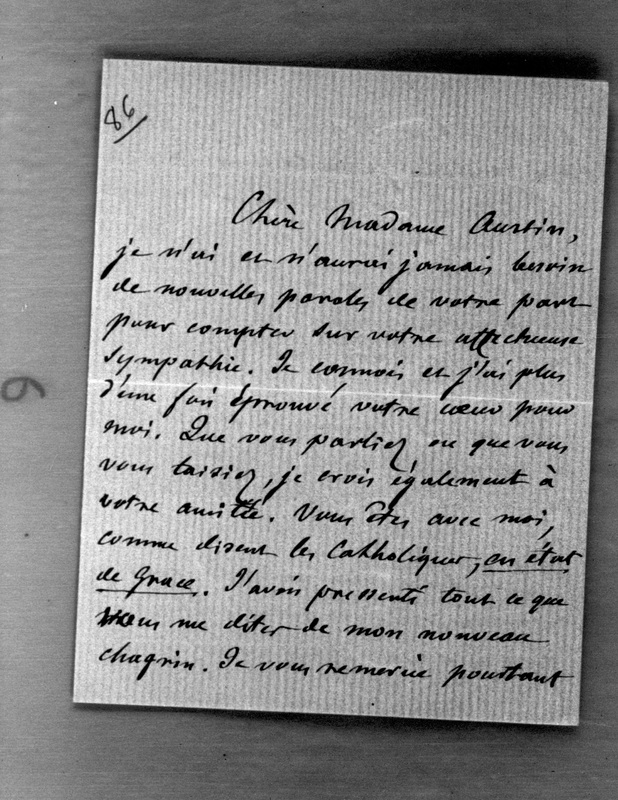 86
Chère Madame Austin,
je n'ai et n'aurai jamais besoin
de nouvelles paroles de votre part
pour compter sur votre affectueuse
sympathie. Je connois et j'ai plus
d'une fois éprouvé votre cœur pour
moi. Que vous parliez ou que vous
vous taisiez, je crois également à
votre amitié. Vous êtes avec moi,
comme disent les Catholiques, en état
de Grace. J'avois pressenti tout ce que
vous me dites de mon nouveau
chagrin. Je vous remercie pourtant
9